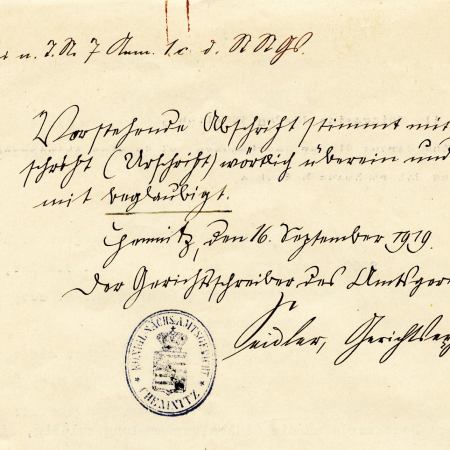 u. T. N. 7 Anm. 1.c d. RKGs.
Vorstehende Abschrift stimmt mit
schrift (Urschrift) wörtlich überein und
mit beglaubigt.
Chemnitz, den 16. September 1919
Der Gerichtsschreiber des Amtsger
Seidler, Gerichts
KÖNIGL. SÄCHS. AMTSGERICHT
CHEMNITZ